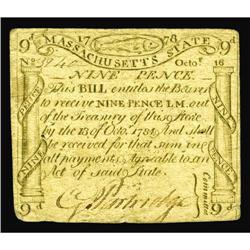 9d 1778 9d
MASSACHUSETTS STATE
No Octor. 16
NINE PENCE.
This BILL entitles the Bearer
to receive NINE PENCE L.M. out
of the Treasury of this State
by the 18 of Octor. 1784 And shall
be received for that sum in
all payments, Agreeable to an
Act of said State.
Committee
NINE
PENCE
PENCE
NINE
9d 9d